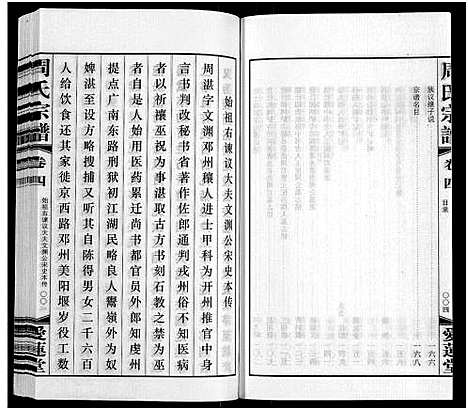 周氏宗譜
卷四
目录
〇〇四
愛蓮堂
族议继子说
宗谱名目
一六六
一六八
始祖右谏议大夫文渊公宋史本传
周湛字文渊邓州穰人进士甲科为开州推官中身
言书判改秘书省著作佐郎通判戎州俗不知医病
者以祈禳巫祝为事湛取古方书刻石教之禁为巫
者自是人始用医药累迁尚书都官员外郎知虔州
提点广南东路刑狱初江湖民略良人鬻岭外为奴
婢湛至设方略搜捕又听其自陈得男女二千六百
人给饮食还其家徙京西路邓州美阳堰岁役工数
周氏宗譜
卷四
始祖右谏议大夫文渊公宋史本传
愛蓮堂